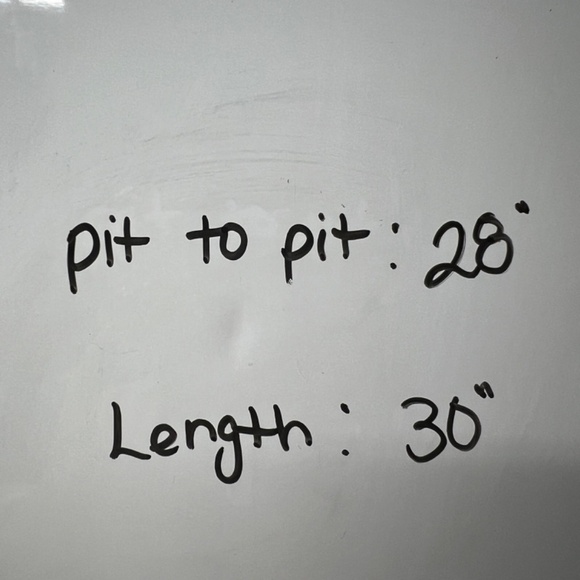 pit to pit: 28"
Length: 30"